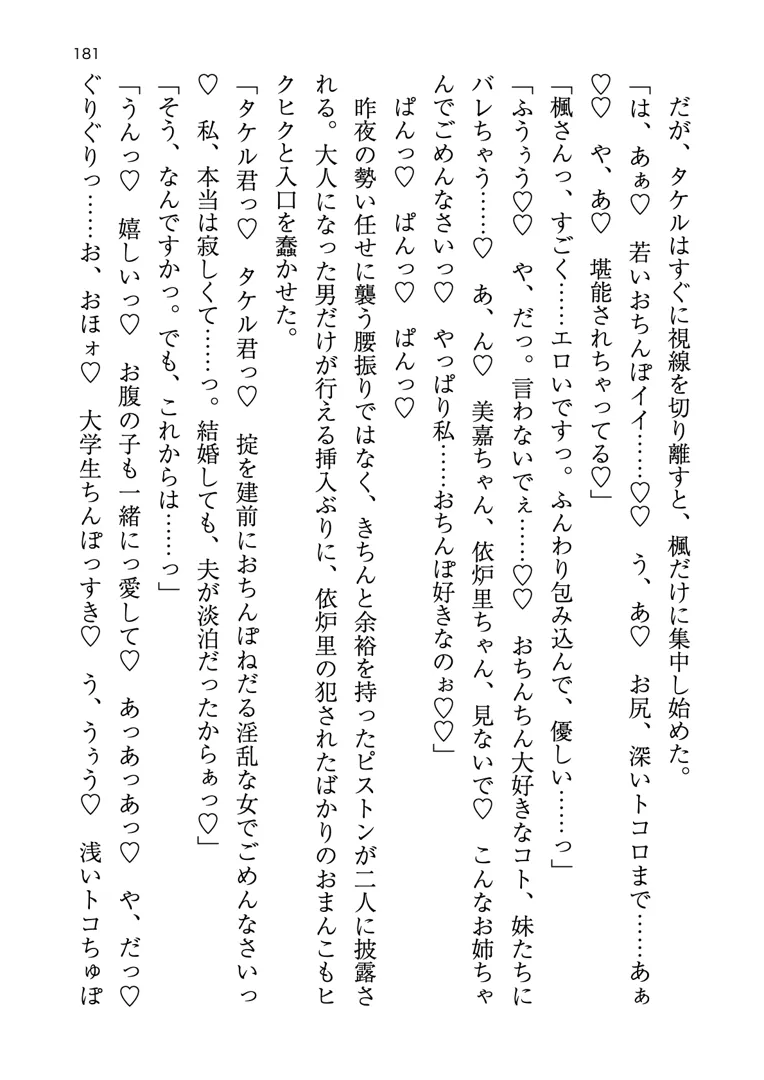 181
だが、タケルはすぐに視線を切り離すと、楓だけに集中し始めた。
「は、あぁ♡　若いおちんぽイイ……♡♡　う、あ♡　お尻、深いトコロまで……あぁ
♡♡　や、あ♡　堪能されちゃってる♡」
「楓さんっ、すごく……エロいですっ。ふんわり包み込んで、優しい……っ」
「ふうぅう♡♡　や、だっ。言わないでぇ……♡♡　おちんちん大好きなコト、妹たちに
バレちゃう……♡　あ、ん♡　美嘉ちゃん、依炉里ちゃん、見ないで♡　こんなお姉ちゃ
んでごめんなさいっ♡　やっぱり私……おちんぽ好きなのぉ♡♡」
ぱんっ♡　ぱんっ♡　ぱんっ♡
昨夜の勢い任せに襲う腰振りではなく、きちんと余裕を持ったピストンが二人に披露さ
れる。大人になった男だけが行える挿入ぶりに、依炉里の犯されたばかりのおまんこもヒ
クヒクと入口を蠢かせた。
「タケル君っ♡　タケル君っ♡　掟を建前におちんぽねだる淫乱な女でごめんなさいっ
♡　私、本当は寂しくて……っ。結婚しても、夫が淡泊だったからぁっ♡」
「そう、なんですかっ。でも、これからは……っ」
「うんっ♡　嬉しいっ♡　お腹の子も一緒にっ愛して♡　あっあっあっ♡　や、だっ♡
ぐりぐりっ……お、おほォ♡　大学生ちんぽっすき♡　う、うぅう♡　浅いトコちゅぽ